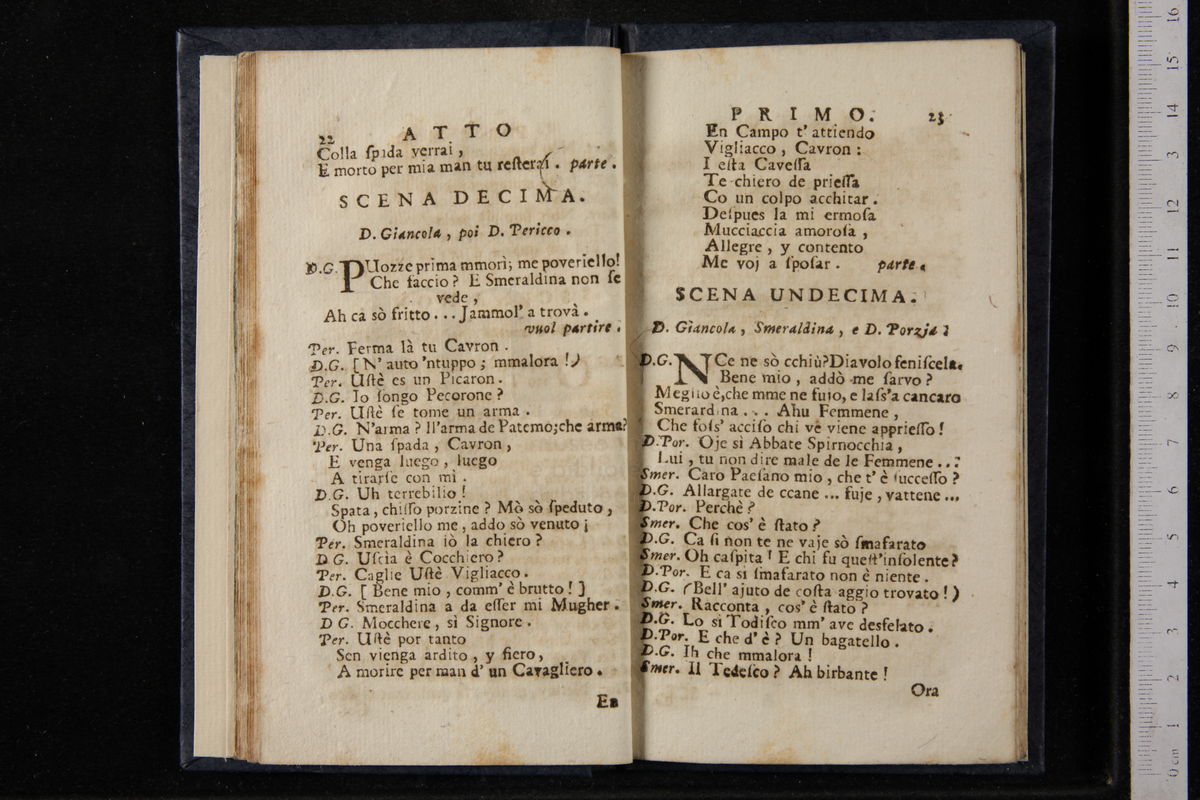 22 ATTO
Colla ſpada verrai,
E morto per mia man tu reſterai. parte.
SCENA DECIMA.
D. Giancola, poi D. Pericco.
D.G. PUozze prima mmorì; me poveriello!
Che faccio? E Smeraldina non ſe
vede,
Ah ca sò fritto... Jammol' a trovà.
vuol partire.
Per. Ferma là tu Cavron.
D.G. [N' auto 'ntuppo; mmalora!)
Per. Uſtè es un Picaron.
D.G. Io ſongo Pecorone?
Per. Uſtè ſe tome un arma.
D.G. N'arma? ll'arma de Patemo;che arma?
Per. Una ſpada, Cavron,
E venga luego, luego
A tirarſe con mì.
D.G. Uh terrebilio!
Spata, chiſſo porzine? Mò sò ſpeduto,
Oh poveriello me, addo sò venuto¡
Per. Smeraldina iò la chiero?
D G. Uſcia è Cocchiero?
Per. Caglie Uſtè Vigliacco.
D.G. [Bene mio, comm' è brutto!]
Per. Smeraldina a da eſſer mi Mugher.
D G. Mocchere, sì Signore.
Per. Uſtè por tanto
Sen vienga ardito, y fiero,
A morire per man d' un Cavagliero.
En
PRIMO. 23
En Campo t' attiendo
Vigliacco, Cavron:
I eſta Caveſſa
Te chiero de prieſſa
Co un colpo acchitar.
Deſpues la mi ermoſa
Mucciaccia amoroſa,
Allegre, y contento
Me voj a ſpoſar. parte.
SCENA UNDECIMA.
D. Giancola, Smeraldina, e D. Porzia.
D.G. NCe ne sò cchiù?Diavolo feniſcela.
Bene mio, addò me ſarvo?
Meglio è,che mme ne fujo, e laſs'a cancaro
Smerardina... Ahu Femmene,
Che foſs' acciſo chi ve viene apprieſſo!
D.Por. Oje sì Abbate Spirnocchia,
Lui, tu non dire male de le Femmene...
Smer. Caro Paeſano mio, che t' è ſucceſſo?
D.G. Allargate de ccane... fuje, vattene...
D.Por. Perchè?
Smer. Che cos' è ſtato?
D.G. Ca ſi non te ne vaje sò ſmafarato
Smer. Oh caſpita! E chi fu queſt'inſolente?
D.Por. E ca si ſmafarato non è niente.
D.G. (Bell' ajuto de coſta aggio trovato!)
Smer. Racconta, cos' è ſtato?
D.G. Lo si Todiſco mm' ave desfelato.
D.Por. E che d' è? Un bagatello.
D.G. Ih che mmalora!
Smer. Il Tedeſco? Ah birbante!
Ora
0 cm 1 2 3 4 5 6 7 8 9 10 11 12 3 14 15 16